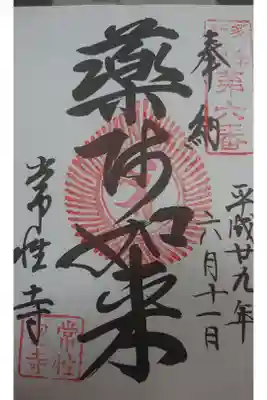 第六番
奉納
平成廿九年
六月十一日
薬師如来
常性寺
常性
寺